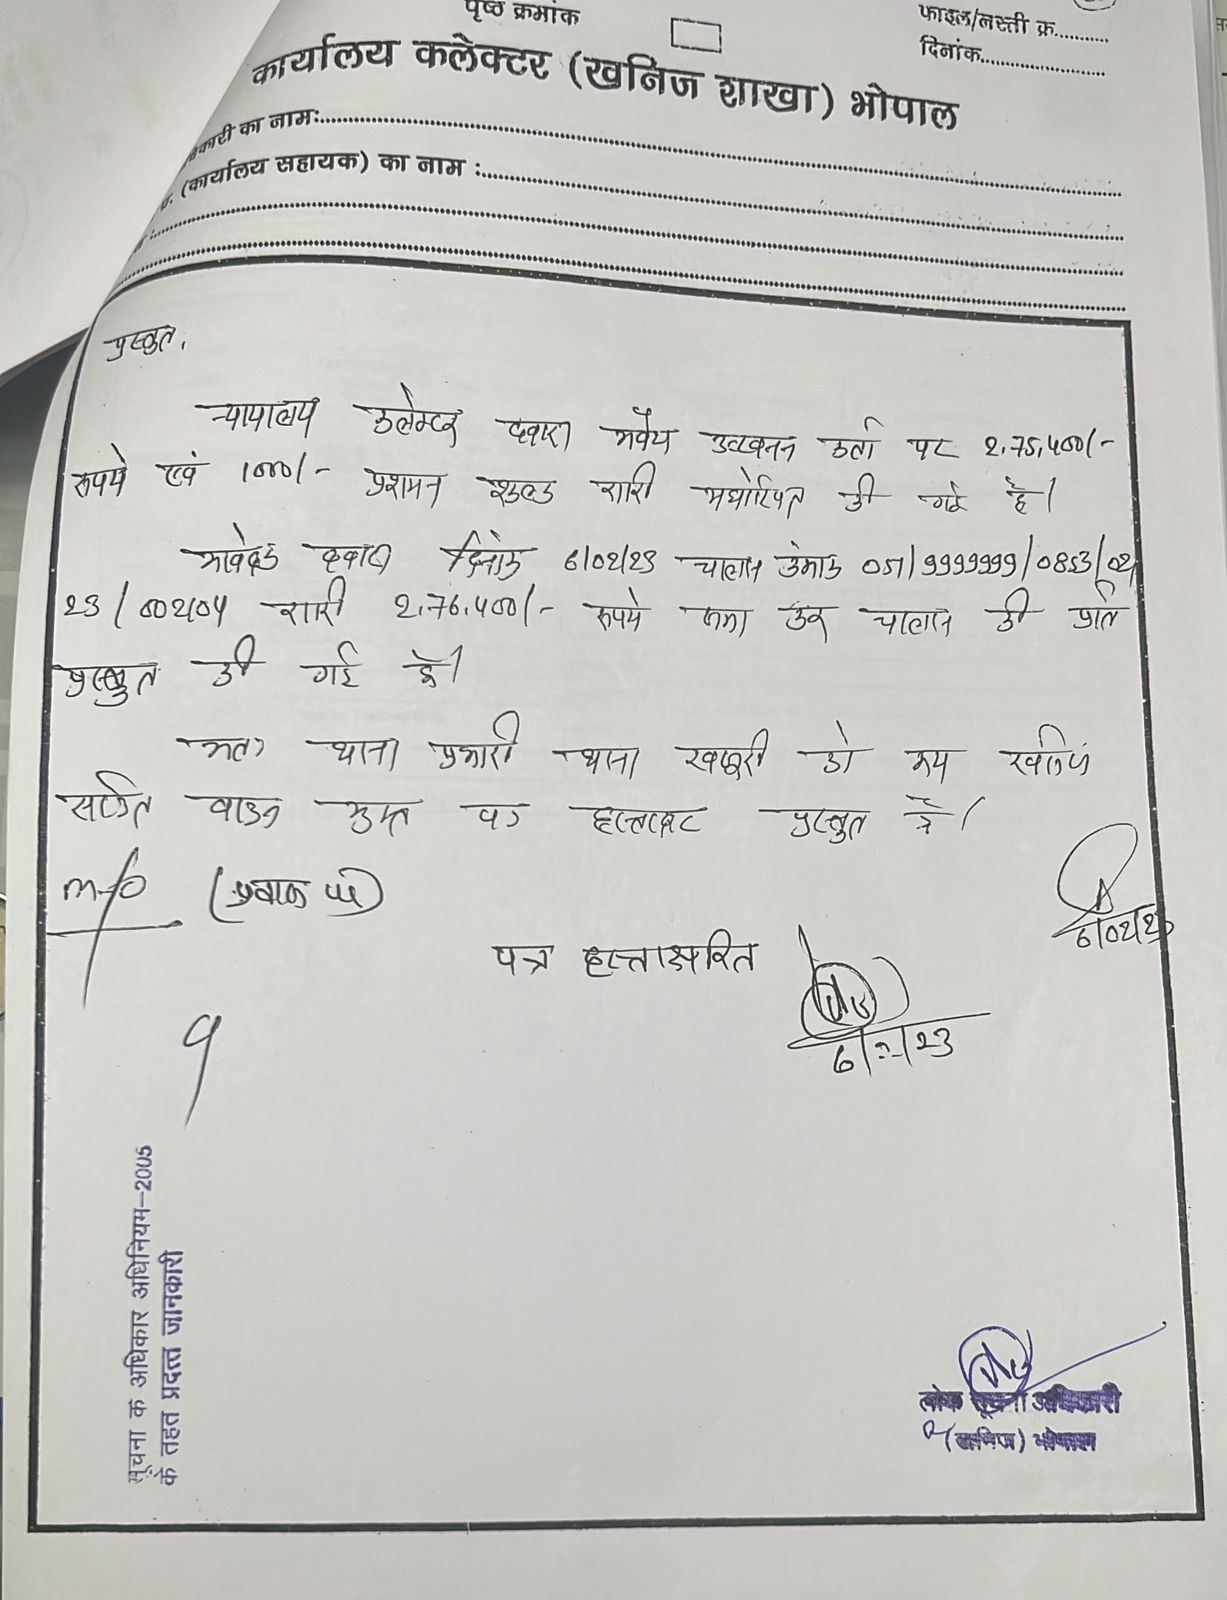 पृष्ठ क्रमांक
फाइल/नस्ती क्र..........
दिनांक........................
कार्यालय कलेक्टर (खनिज शाखा) भोपाल
कारी का नामः
(कार्यालय सहायक) का नाम :
प्रस्तुत,
न्यायालय कलेक्टर द्वारा अवैध उत्खनन कर्ता पर 2,75,400/-
रूपये एवं 1000/- प्रशमन शुल्क राशी अधोरोपित की गई है।
आवेदक द्वारा दिनांक 6/02/23 चालान क्रमांक 051/9999999/0853/02
23/002104 राशी 2,76,400/- रूपये जमा कर चालान की प्रति
प्रस्तुत की गई है।
अतः थाना प्रभारी थाना खजूरी को मय खनिज
सहित वाहन मुक्त पत्र हस्ताक्षर प्रस्तुत है।
6/02/23
पत्र हस्ताक्षरित
6/2/23
सूचना के अधिकार अधिनियम-2005
के तहत प्रदत्त जानकारी
लोक सूचना अधिकारी
(खनिज) भोपाल